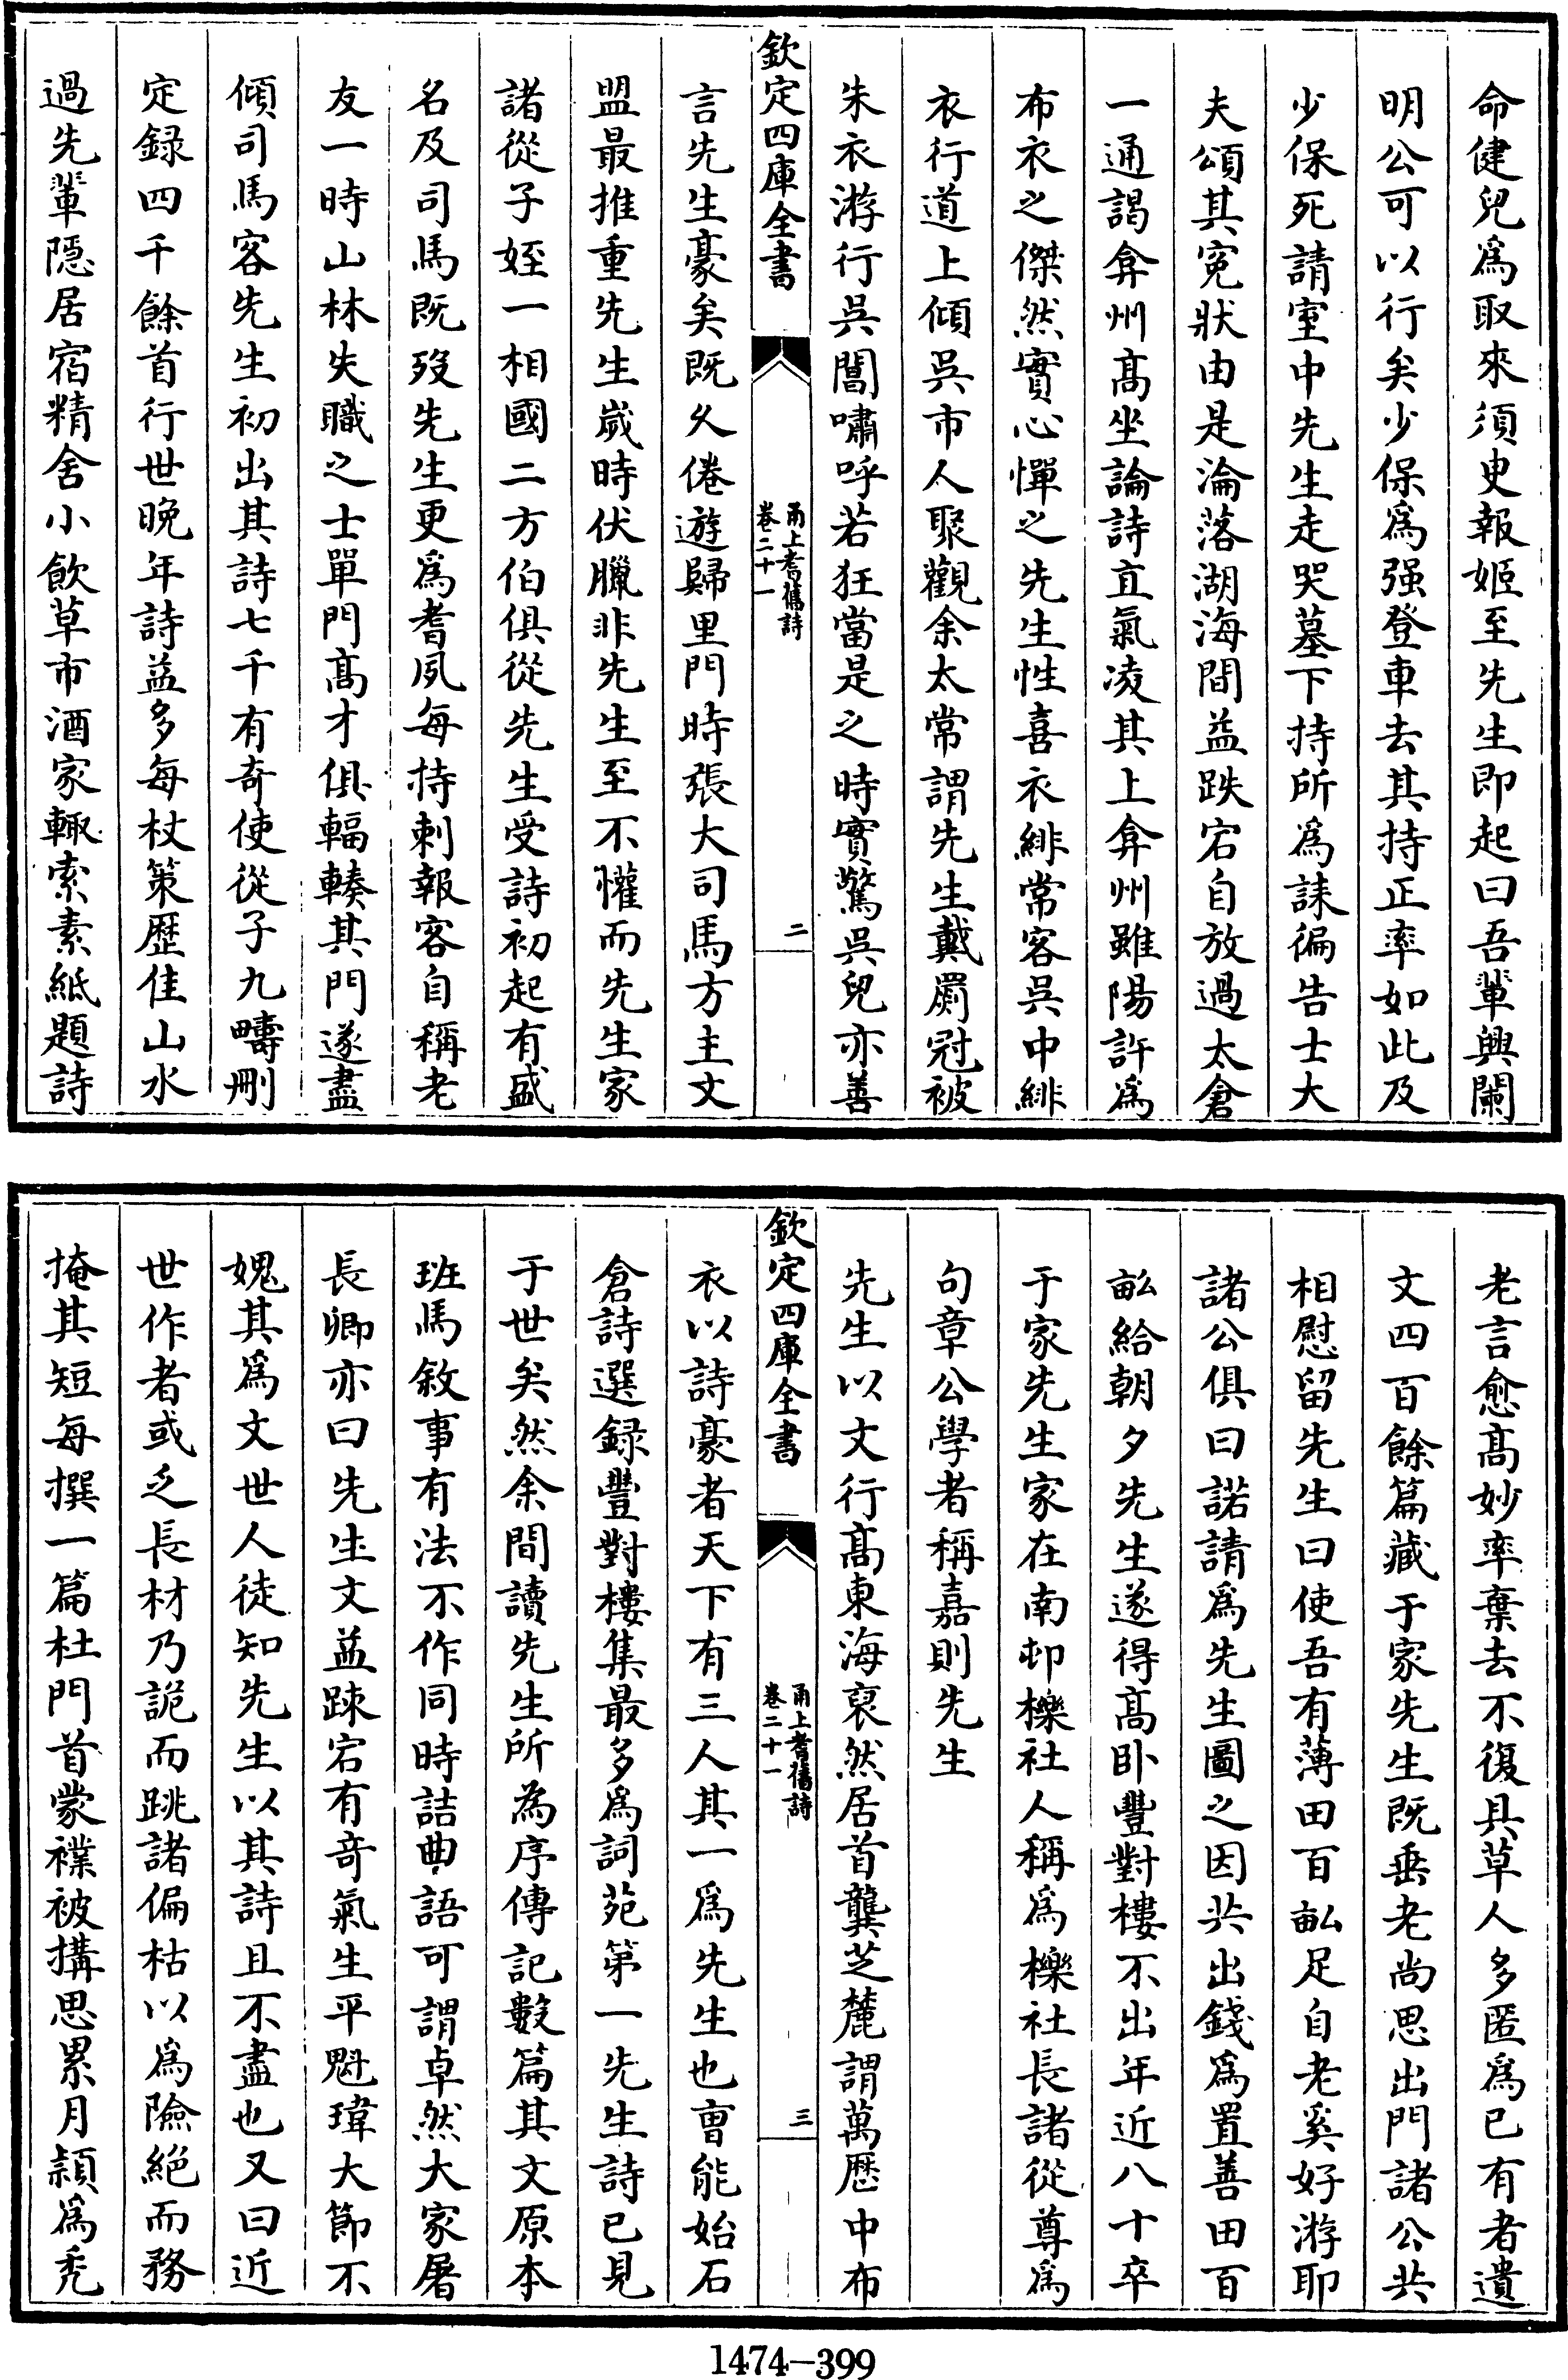 命健兒爲取來須臾報姬至先生即起曰吾輩興闌
明公可以行矣少保爲强登車去其持正率如此及
少保死請室中先生走哭墓下持所爲誄徧告士大
夫頌其寃狀由是淪落湖海間益跌宕自放過太倉
一通謁弇州髙坐論詩直氣凌其上弇州雖陽許爲
布衣之傑然實心憚之先生性喜衣緋常客吳中緋
衣行道上傾吳市人聚觀余太常謂先生戴罽冠被
朱衣游行吳閶嘯呼若狂當是之時實驚吳兒亦善
欽定四庫全書
甬上耆舊詩
卷二十一
二
言先生豪矣既乆倦遊歸里門時張大司馬方主文
盟最推重先生嵗時伏臘非先生至不懽而先生家
諸從子姪一相國二方伯俱從先生受詩初起有盛
名及司馬既歿先生更爲耆夙每持刺報客自稱老
友一時山林失職之士單門髙才俱輻輳其門遂盡
傾司馬客先生初出其詩七千有奇使從子九疇刪
定録四千餘首行世晚年詩益多每杖策歷佳山水
過先輩隱居宿精舍小飲草市酒家輙索素紙題詩
老言愈髙妙率棄去不復具草人多匿爲已有者遺
文四百餘篇藏于家先生既垂老尚思出門諸公共
相慰留先生曰使吾有薄田百畆足自老奚好游耶
諸公俱曰諾請爲先生圖之因共出錢爲置善田百
畆給朝夕先生遂得髙卧豐對樓不出年近八十卒
于家先生家在南邨櫟社人稱爲櫟社長諸從尊爲
句章公學者稱嘉則先生
先生以文行髙東海裒然居首龔芝麓謂萬厯中布
欽定四庫全書
甬上耆舊詩
卷二十一
三
衣以詩豪者天下有三人其一爲先生也曺能始石
倉詩選録豐對樓集最多爲詞苑第一先生詩已見
于世矣然余間讀先生所為序傳記數篇其文原本
班馬敘事有法不作同時詰曲語可謂卓然大家屠
長卿亦曰先生文益踈宕有竒氣生平魁瑋大節不
媿其爲文世人徒知先生以其詩且不盡也又曰近
世作者或乏長材乃詭而跳諸偏枯以爲險絕而務
掩其短每撰一篇杜門首蒙襆被搆思累月頴爲秃
1474-399